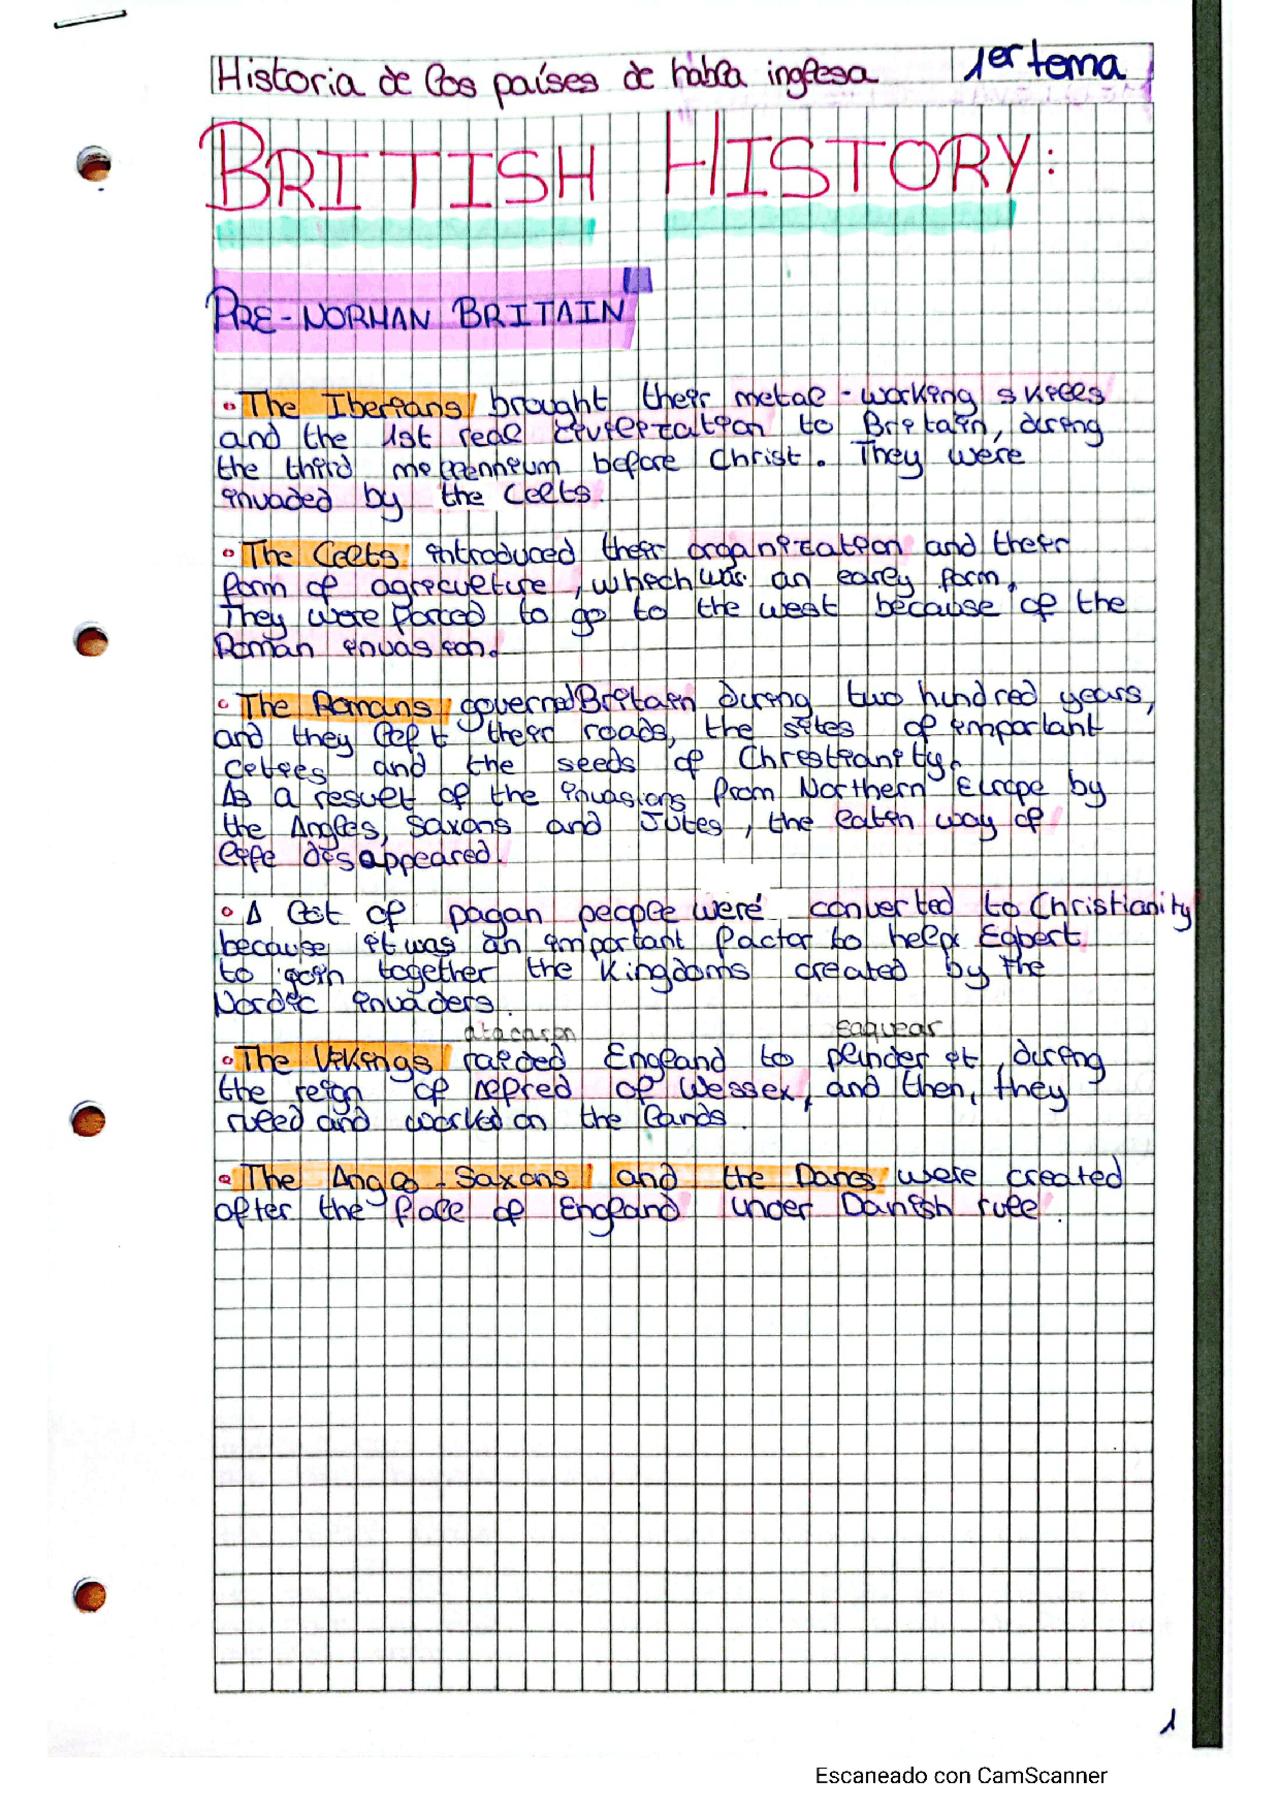 Historia de los países de habla inglesa 1er tema
BRITISH HISTORY:
PRE-NORMAN BRITAIN
• The Iberians brought their metal-working skills
and the 1st real civilization to Britain, during
the third millennium before Christ. They were
invaded by the Celts.
• The Celts introduced their organization and their
form of agriculture, which was an early form.
They were forced to go to the west because of the
Roman invasion.
• The Romans governed Britain during two hundred years,
and they left their roads, the sites of important
cities and the seeds of Christianity.
As a result of the invasions from Northern Europe by
the Angles, Saxons and Jutes, the latin way of
life disappeared.
• A lot of pagan people were converted to Christianity
because it was an important factor to help Egbert
to join together the Kingdoms created by the
Nordic invaders.
atacaron saquear
• The Vikings raided England to plunder it, during
the reign of Alfred of Wessex, and then, they
ruled and worked on the lands.
• The Anglo-Saxons and the Danes were created
after the place of England under Danish rule.
1
Escaneado con CamScanner